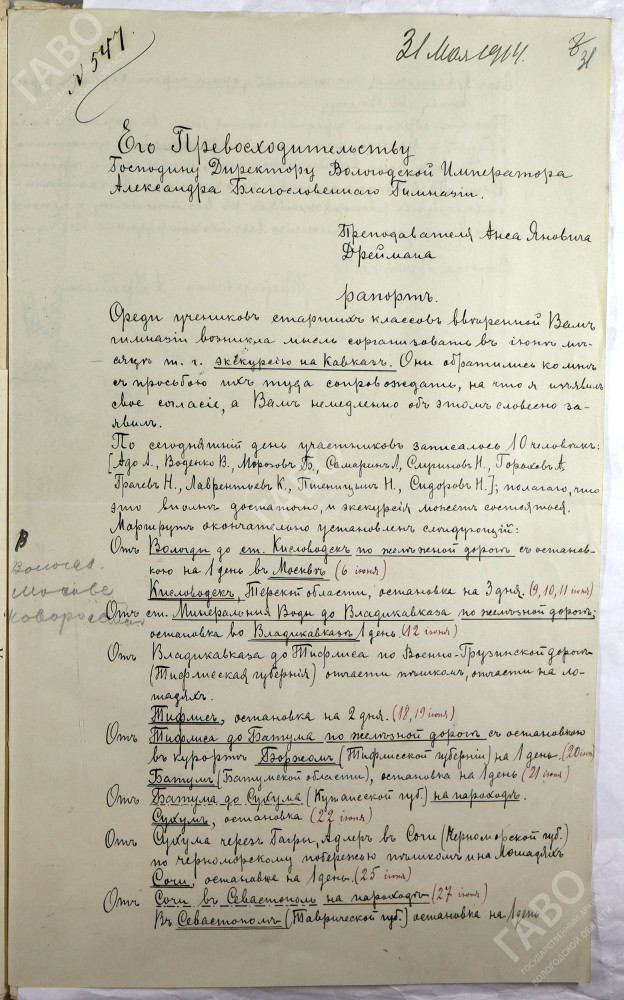 № 547.
31 Мая 1914.
31
Его Превосходительству
Господину Директору Вологодской Императора
Александра Благословеннаго Гимназіи.
Преподавателя Анса Яновича
Дреймана
рапортъ.
Среди учениковъ старшихъ классовъ ввѣренной Вамъ
гимназіи возникла мысль сорганизовать въ іюнѣ мѣ-
сяцѣ т. г. экскурсію на Кавказъ. Они обратились ко мнѣ
съ просьбою ихъ туда сопровождать, на что я изъявилъ
свое согласіе, а Вамъ немедленно объ этомъ словесно за-
явилъ.
По сегодняшній день участниковъ записалось 10 человѣкъ:
[Адо А., Воденко В., Морозовъ Б., Самаринъ Л., Смугиновъ Н., Гороховъ А.
Грачевъ Н., Лаврентьевъ К., Пшеницынъ Н., Сидоровъ Н.]; полагаю, что
это вполнѣ достаточно, и экскурсія можетъ состояться.
Маршрутъ окончательно установленъ слѣдующій:
Отъ Вологды до ст. Кисловодскъ по желѣзной дорогѣ съ останов-
кою на 1 день въ Москвѣ (6 іюня)
Кисловодскъ, Терской области, остановка на 3 дня. (9, 10, 11 іюня)
В
Вологда.
Москве
Новоросси
Отъ ст. Минеральныя Воды до Владикавказа по желѣзной дорогѣ;
остановка во Владикавказѣ 1 день (12 іюня)
Отъ Владикавказа до Тифлиса по Военно-Грузинской дорогѣ
(Тифлисская губернія) отчасти пѣшкомъ, отчасти на ло-
шадяхъ.
Тифлисъ, остановка на 2 дня. (18, 19 іюня)
Отъ Тифлиса до Батума по желѣзной дорогѣ съ остановкою
въ курортѣ Боржомъ (Тифлисской губерніи) на 1 день. (20 іюня)
Батумъ (Батумской области), остановка на 1 день (21 іюня)
Отъ Батума до Сухума (Кутаисской губ.) на пароходѣ.
Сухумъ, остановка (22 іюня)
Отъ Сухума черезъ Гагры, Адлеръ въ Сочи (Черноморской губ.)
по черноморскому побережью пѣшкомъ и на лошадяхъ
Сочи, остановка на 1 день. (25 іюня)
Отъ Сочи въ Севастополь на пароходѣ (27 іюня)
Въ Севастополѣ (Таврической губ.) остановка на 1 день
ГАВО
ГОСУДАРСТВЕННЫЙ АРХИВ
ВОЛОГОДСКОЙ ОБЛАСТИ